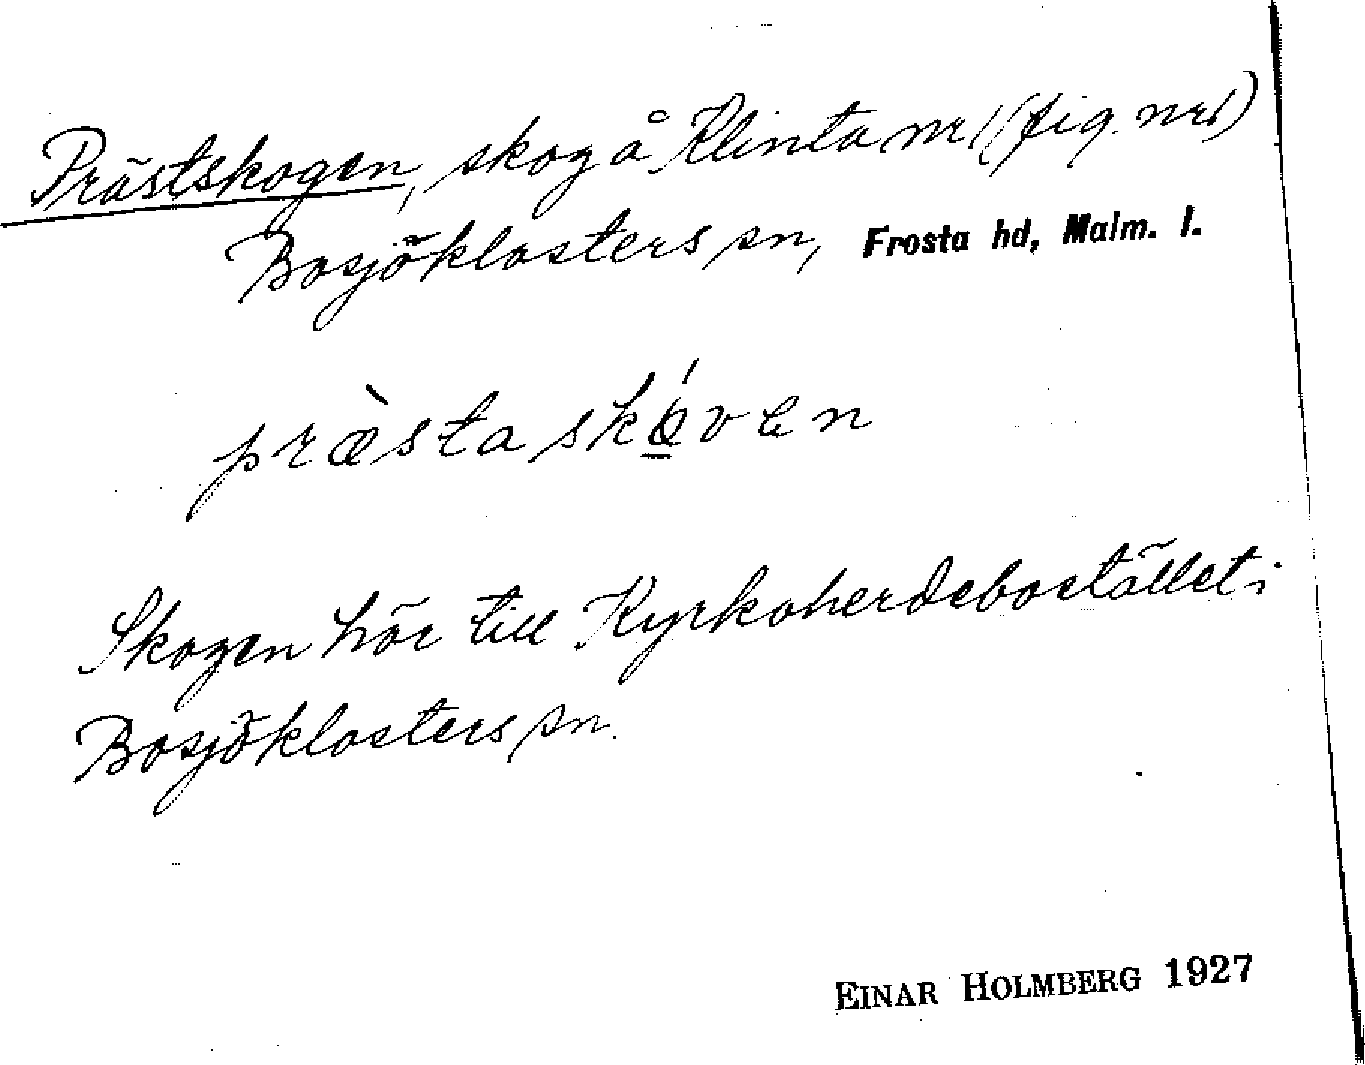 Prästskogen, skog å Klinta nr 1 (fig. nr 1)
Bosjöklosters sn, Frosta hd, Malm. l.
præ̀sta skó̱ven
Skogen hör till Kyrkoherdebostället i
Bosjöklosters sn.
EINAR HOLMBERG 1927